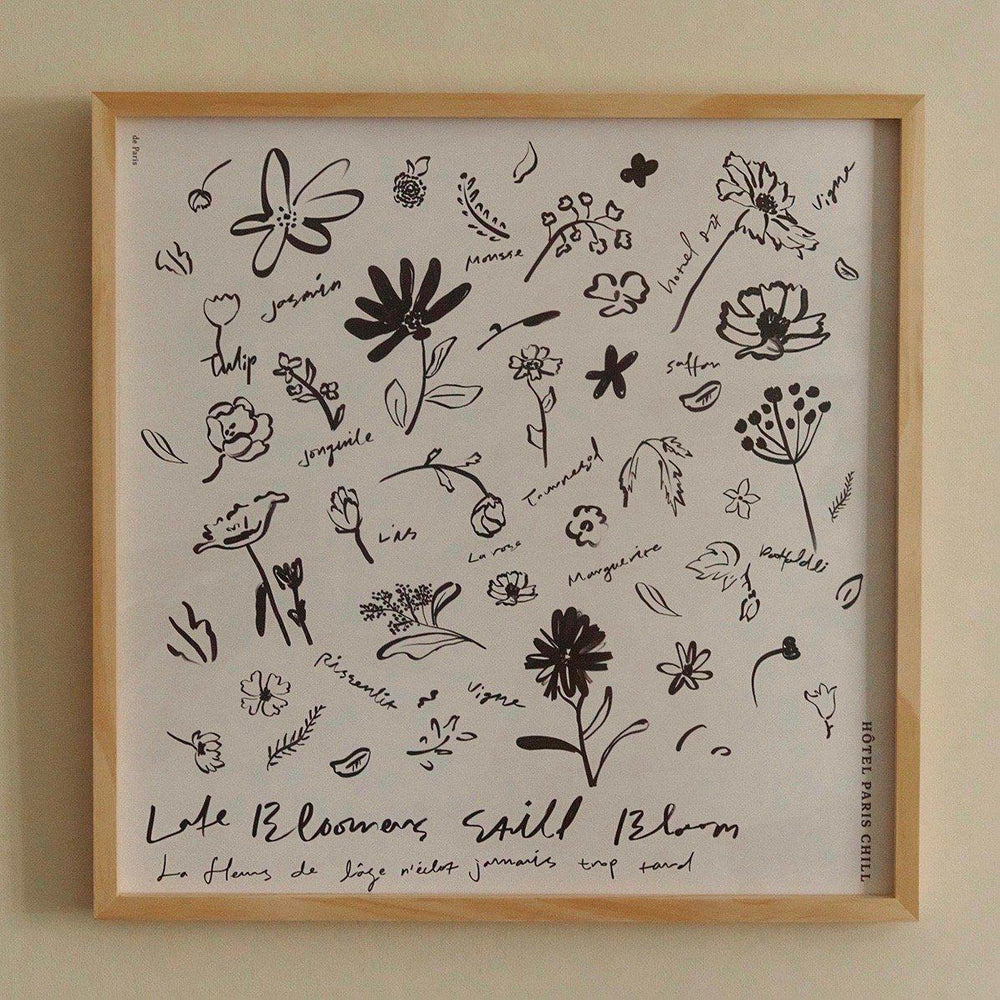 de Paris
Vigne
Mousse
hotel
Jasmin
Tulip
saffan
Jonquile
Lils
La rose
Marguerite
Vigne
HÔTEL PARIS CHILL
Late Bloomers Still Bloom
La fleurs de l'âge n'éclot jamais trop tard